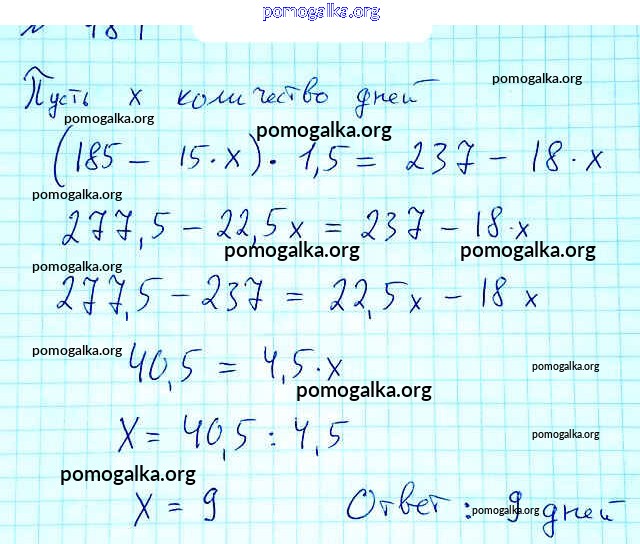 pomogalka.org
№ 481
pomogalka.org
Пусть x количество дней
pomogalka.org
pomogalka.org
(185 - 15·x)·1,5 = 237 - 18·x
pomogalka.org
277,5 - 22,5x = 237 - 18·x
pomogalka.org pomogalka.org
pomogalka.org
277,5 - 237 = 22,5x - 18x
pomogalka.org
40,5 = 4,5·x
pomogalka.org
pomogalka.org
X = 40,5 : 4,5
pomogalka.org
pomogalka.org
X = 9 Ответ: 9 дней
pomogalka.org